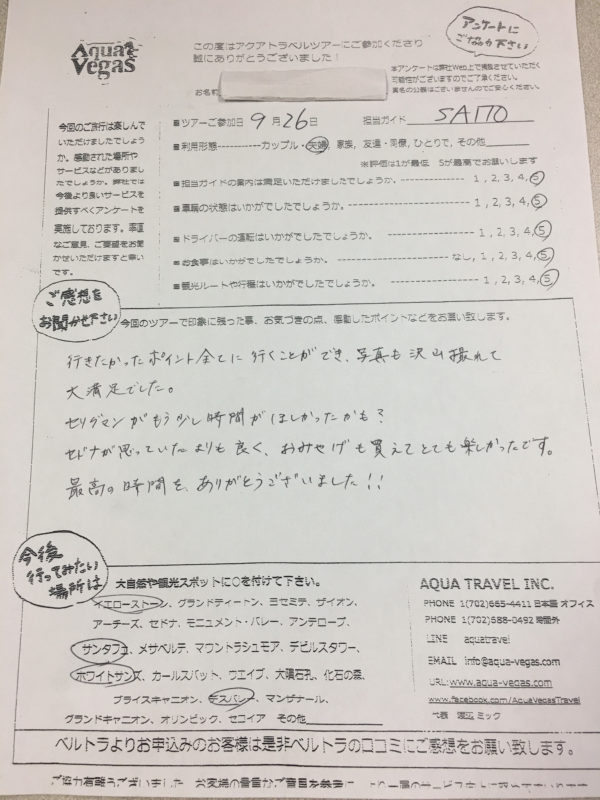 Aqua Vegas
この度はアクアトラベルツアーにご参加くださり
誠にありがとうございました！
アンケートに
ご協力下さい
本アンケートは弊社Web上で掲載させていただく
可能性がございますのでご了承ください。
実名の公表はございませんのでご安心ください。
お名前
今回のご旅行は楽しんで
いただけましたでしょう
か。感動された場所や
サービスなどがありまし
たでしょうか。弊社では
今後より良いサービスを
提供すべくアンケートを
実施しております。率直
なご意見、ご要望をお聞
かせいただけますと幸い
です。
■ツアーご参加日 9 月 26 日 担当ガイド SAITO
■利用形態-----------カップル・夫婦, 家族, 友達・同僚, ひとりで, その他
※評価は1が最低 5が最高でお願いします
■担当ガイドの案内は満足いただけましたでしょうか。 1 , 2, 3, 4, 5
■車輌の状態はいかがでしたでしょうか。 1 , 2, 3, 4, 5
■ドライバーの運転はいかがでしたでしょうか。 1 , 2, 3, 4, 5
■お食事はいかがでしたでしょうか。 なし, 1, 2, 3, 4, 5
■観光ルートや行程はいかがでしたでしょうか。 1, 2, 3, 4, 5
ご感想を
お聞かせ下さい
今回のツアーで印象に残った事、お気づきの点、感動したポイントなどをお願い致します。
行きたかったポイント全てに行くことができ、写真も沢山撮れて
大満足でした。
セリグマンがもう少し時間がほしかったかも？
セドナが思っていたよりも良く、おみやげも買えてとても楽しかったです。
最高の時間を、ありがとうございました！！
今後
行ってみたい
場所は
大自然や観光スポットに○を付けて下さい。
イエローストーン、グランドティートン、ヨセミテ、ザイオン、
アーチーズ、セドナ、モニュメント・バレー、アンテロープ、
サンタフェ、メサベルテ、マウントラシュモア、デビルスタワー、
ホワイトサンズ、カールスバット、ウエイブ、大隕石孔、化石の森、
ブライスキャニオン、デスバレー、マンザナール、
グランドキャニオン、オリンピック、セコイア その他
AQUA TRAVEL INC.
PHONE 1(702)665-4411 日本語 オフィス
PHONE 1(702)588-0492 時間外
LINE aquatravel
EMAIL info@aqua-vegas.com
URL:www.aqua-vegas.com
www.facebook.com/AquaVegasTravel
代表 渡辺 ミック
ベルトラよりお申込みのお客様は是非ベルトラの口コミにご感想をお願い致します。